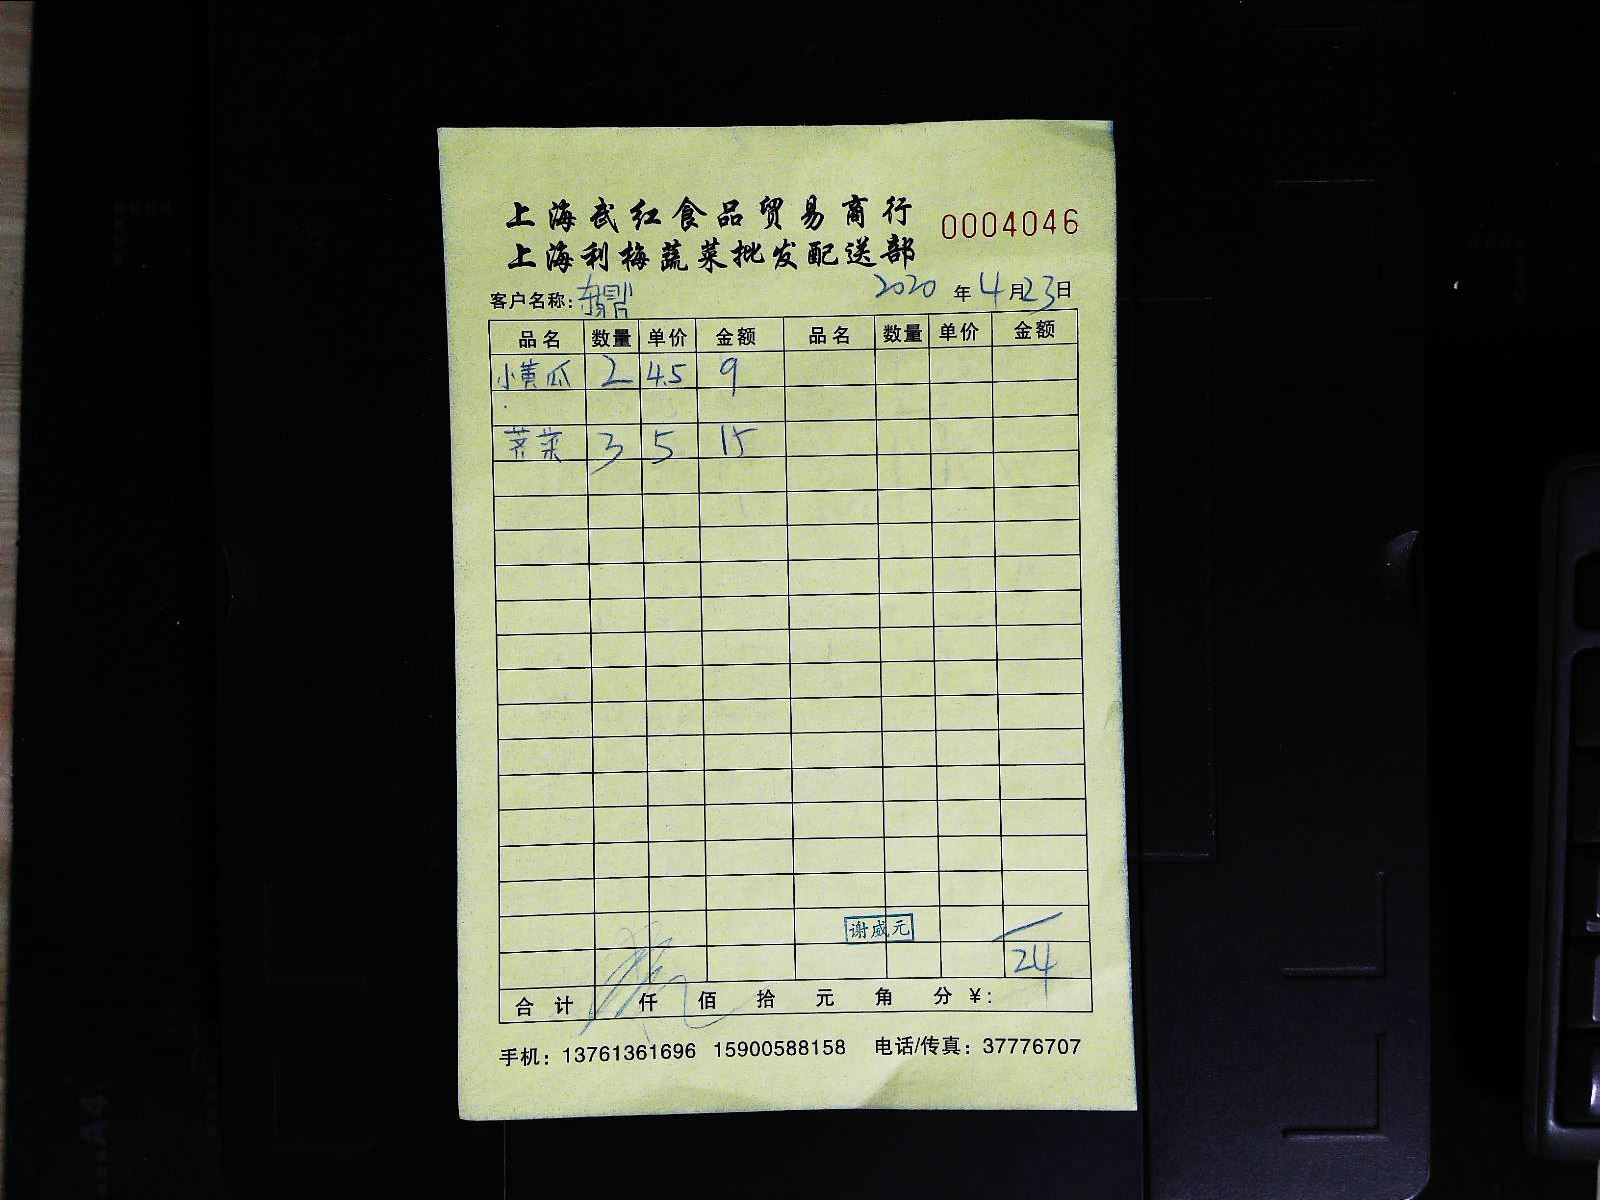 上海武红食品贸易商行
上海利梅蔬菜批发配送部
0004046
客户名称: 东鼎 2020 年 4 月 23 日
品名 数量 单价 金额 品名 数量 单价 金额
小黄瓜 2 4.5 9
荠菜 3 5 15
谢威元
24
合计 仟 佰 拾 元 角 分 ¥:
手机: 13761361696 15900588158 电话/传真: 37776707